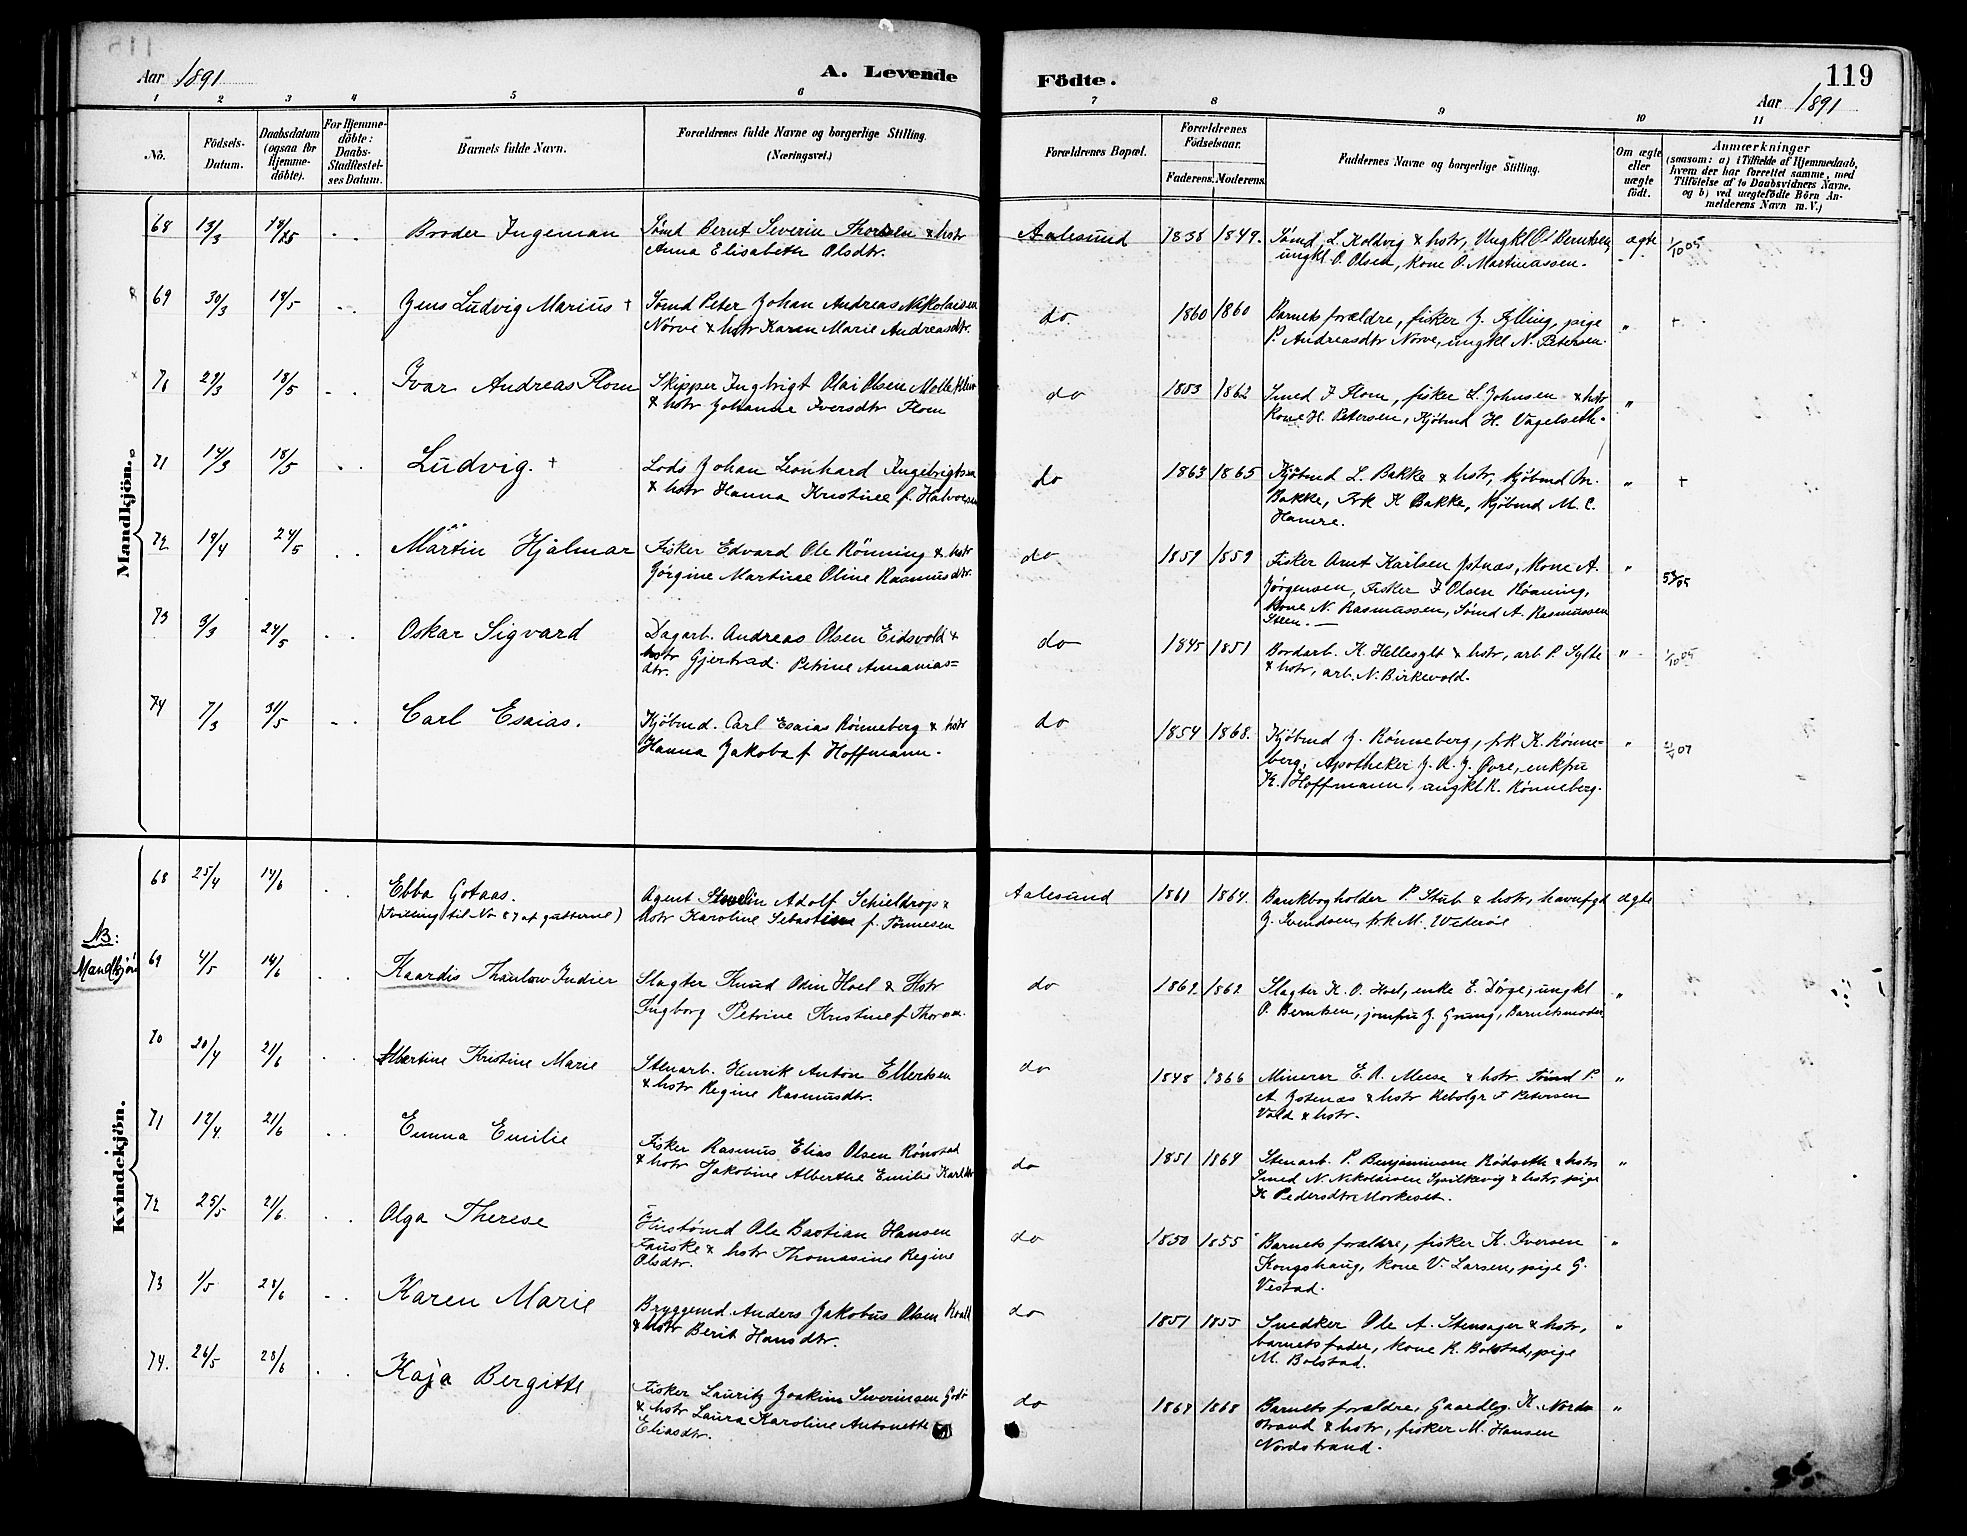 Aar 1891
A. Levende Födte.
119
Aar 1891
1 2 3 4 5 6 7 8 9 10 11
No.
Födsels-Datum.
Daabsdatum (ogsaa for Hjemme-döbte).
For Hjemme-döbte: Daabs-Stadfæstelses Datum.
Barnets fulde Navn.
Forældrenes fulde Navne og borgerlige Stilling. (Næringsvei.)
Forældrenes Bopæl.
Forældrenes Födselsaar.
Faderens. Moderens.
Faddernes Navne og borgerlige Stilling.
Om ægte eller uægte födt.
Anmærkninger
(saasom: a) i Tilfælde af Hjemmedaab, hvem der har forrettet samme, med Tilföielse af to Daabsvidners Navne, og b) ved uægtefödte Börn Anmelderens Navn m. V.)
Mandkjön.
68 13/3 Broder Ingeman
Sømd Bernt Severin Thorsen & hstr
Anna Elisabeth Olsdtr.
Aalesund 1838 1849.
Sømd. L. Koldvig & hstr, Ungkl O. Berntsen,
ungkl O. Olsen, kone O. Martinassen.
ægte
69 30/3 18/5 Jens Ludvig Marius +
Sømd Peter Johan Andreas Nikolaisen
Nørve & hstr Karen Marie Andreasdtr.
do 1860 1860
Barnets forældre, fisker J. Fylling, pige
P. Andreasdtr Nørve, ungkl N. Petersen.
" +
70 29/3 18/5 Ivar Andreas Flom
Skipper Ingbrigt Olai Olsen Molle
& hstr Johanne Iversdtr Flom
do 1853 1862
Smed I Flom, fisker L. Johnsen & hstr
Kone H. Petersen, Kjøbmd H. Vagelseth.
"
71 14/3 18/5 Ludvig. +
Lods Johan Leonhard Ingebrigtsen
& hstr Hanna Kristine f. Halvorsen
do 1863 1865
Kjøbmd L. Bakke & hstr, kjøbmd
Bakke, Frk K Bakke, kjøbmd M. C.
" +
72 19/4 24/5 Martin Hjalmar
Fisker Edvard Ole Rønning & hstr
Jørgine Martine Oline Rasmusdtr.
do 1859 1859
Fisker Arnt Karlsen Jstnæs, Kone A.
Jørgensen, Fisker I Olsen Rønning,
Kone N. Rasmussen, Sømd A. Rasmussen
Steen.
"
73 3/3 24/5 Oskar Sigvard
Dagarb. Andreas Olsen Eidsvold &
hstr Gjertrud Petrine Annanias=
dtr.
do 1845 1851
Bordarb. K. Hellesylt & hstr, arb. P. Sylte
& hstr, arb. N. Birkevold.
"
74 7/3 31/5 Carl Esaias.
Kjøbmd. Carl Esaias Rønneberg & hstr
Hanna Jakoba f. Hoffmann.
do 1854 1868.
Kjøbmd J. Rønneberg, frk K. Rønne-
berg, Apotheker J. A. J. Øvre, enkfru
K. Hoffmann, ungkl K. Rønneberg.
"
Kvindekjön.
68 25/4 14/6 Ebba Gotaas.
(Tvilling til No 87 af gutterne)
Agent Adolf Schieldrop &
hstr Karoline Sebastine f. Tønnesen
Aalesund 1861 1864.
Bankbogholder P. Stub & hstr, havnefgd
J. Svendsen, frk M. Wederøe
ægte
NB:
Mandkjøn
69 4/5 14/6 Kaardis Thaulow Indier
Slagter Knud Odin Hoel & Hstr
Ingborg Petrine Kristine f. Thor
do 1862. 1862
Slagter K. O. Hoel, enke E. Dørge, ungkl
O. Berntsen, jomfru J. Grung, Barnets moder.
"
70 20/4 21/6 Albertine Kristine Marie
Stenarb. Henrik Anton Ellertsen
& hstr Regine Rasmusdtr.
do 1848 1866
Minerer E. A. Muse & hstr. Sømd P.
A Jstenæs & hstr Petersen
Vold & hstr.
"
71 12/4. 21/6 Emma Emilie
Fisker Rasmus Elias Olsen Rønstad
& hstr Jakobine Alberthe Emilie Karlsdtr
do 1851 1864
Stenarb. P. Benjaminsen Rødseth & hstr
Smed N. Nikolaisen Spilkevig & hstr, pige
K Pedersdtr Morkeset.
"
72 25/5 21/6. Olga Therese
Hustømd Ole Bastian Hansen
Fauske & hstr Thomasine Regine
Olsdtr.
do 1850 1855
Barnets forældre, fisker K. Iversen
Kongshaug, kone V. Larsen, pige G.
Vestad.
"
73 1/5 28/6 Karen Marie
Bryggemd. Anders Jakobus Olsen
& hstr Berit Hansdtr.
do 1851 1855
Snedker Ole A. Stensager & hstr,
barnets fader, kone K. Bolstad, pige
M. Bolstad.
"
74. 26/5 28/6 Kaja Bergitte
Fisker Lauritz Joakim Severinsen Godø
& hstr Laura Karoline Antonette
Eliasdtr.
do 1867 1868
Barnets forældre, Gaardbr. K. Nord-
strand & hstr, fisker M. Hansen
Nordstrand.
"